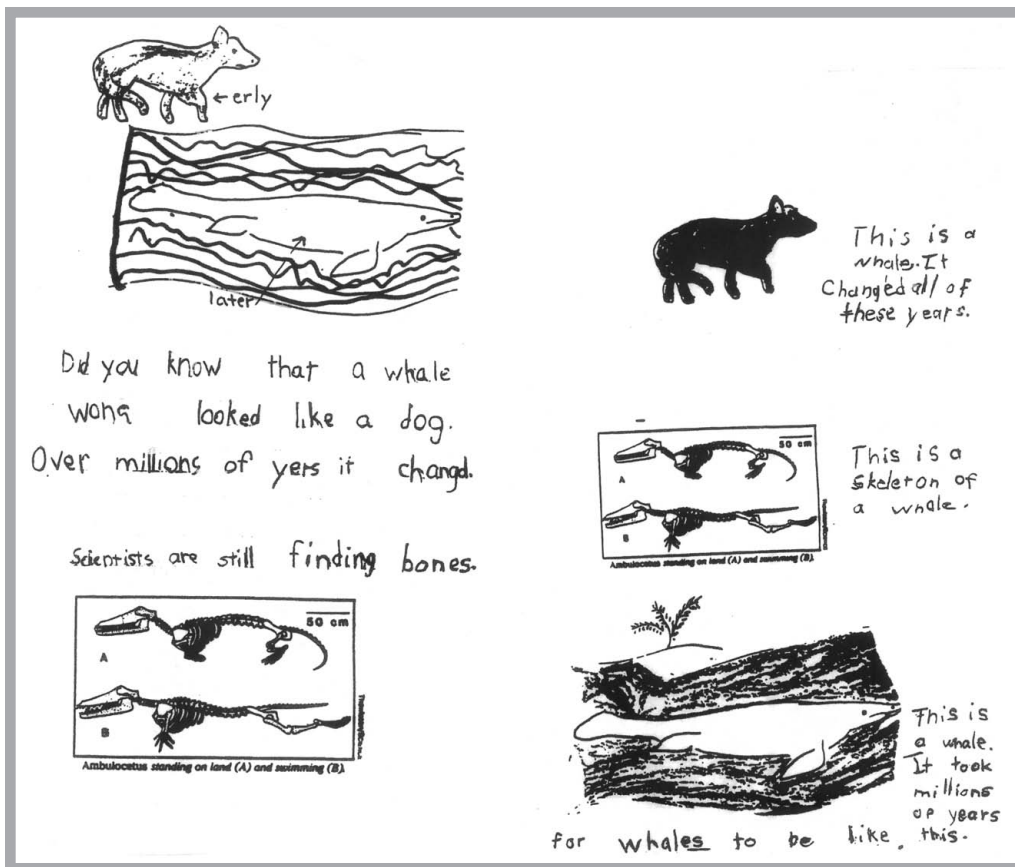 ←erly
later
Did you know that a whale
wona looked like a dog.
Over millions of yers it changd.
Scientists are still finding bones.
50 cm
A
B
Ambulocetus standing on land (A) and swimming (B).
This is a
whale. It
Changed all of
these years.
50 cm
A
B
Ambulocetus standing on land (A) and swimming (B).
This is a
skeleton of
a whale.
This is
a whale.
It took
millions
of years
for whales to be like this.